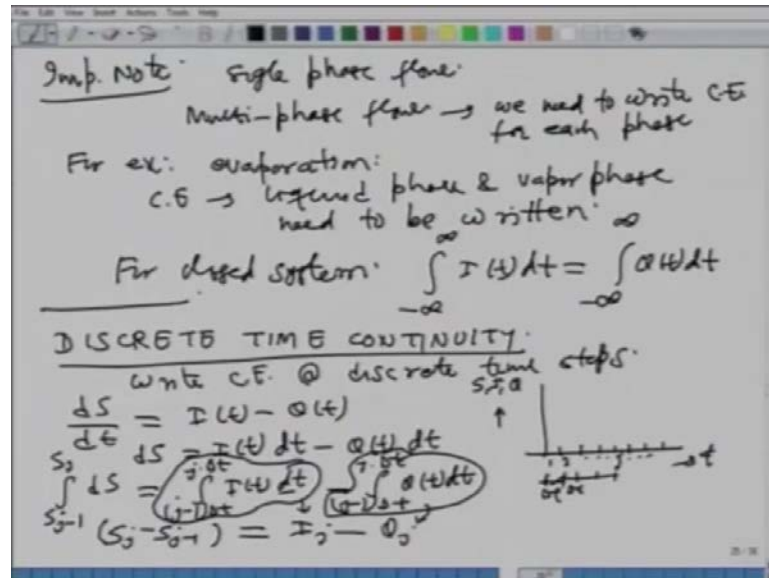 Imp. Note: Sigle phase flow.
Multi-phase flow → we need to write C.E.
for each phase
For ex: evaporation:
C.E → liquid phase & vapor phase
need to be written.
For closed system: ∫_{-∞}^{∞} I(t) dt = ∫_{-∞}^{∞} Q(t) dt
DISCRETE TIME CONTINUITY.
Write C.E. @ discrete time steps.
S, I, Q ↑
dS/dt = I(t) - Q(t)
dS = I(t) dt - Q(t) dt
→ t
1 2 j
Δt Δt
∫_{S_{j-1}}^{S_j} dS = ∫_{(j-1)Δt}^{j.Δt} I(t) dt - ∫_{(j-1)Δt}^{j.Δt} Q(t) dt
(S_j - S_{j-1}) = I_j - Q_j